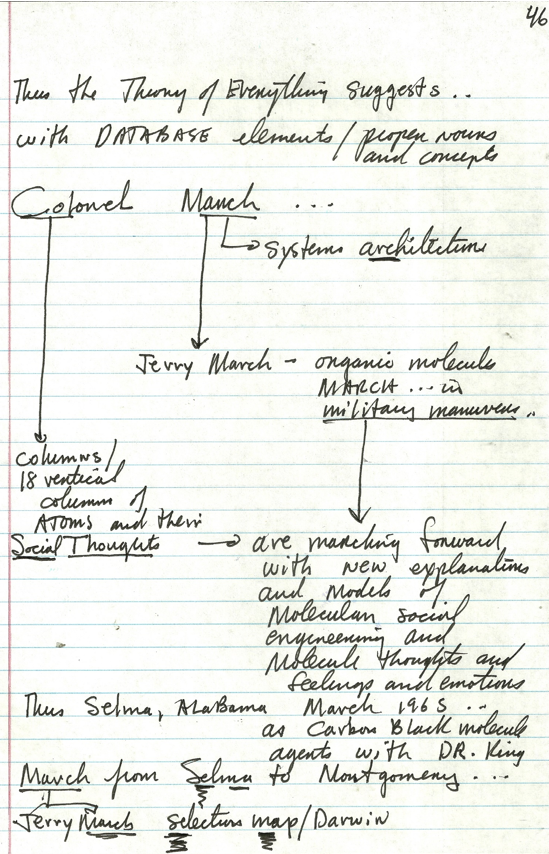 46
Thus the Theory of Everything suggests..
with DATABASE elements/proper nouns
and concepts
Colonel March ...
systems architecture
Jerry March - organic molecule
MARCH ... in
military maneuvers..
columns/
18 vertical
columns of
ATOMS and their
Social Thoughts
are marching forward
with new explanations
and models of
Molecular social
engineering and
Molecule thoughts and
feelings and emotions
Thus Selma, ALABAMA March 1965 ..
as Carbon Black molecule
agents with DR. King
March from Selma to Montgomery ...
Jerry March selections map/Darwin